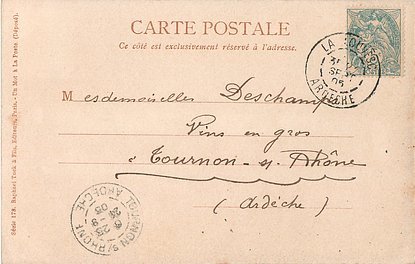 CARTE POSTALE
Ce côté est exclusivement réservé à l'adresse.
LA LOUVESC
ARDÈCHE
Mesdemoiselles Deschamps
Vins en gros
à Tournon s/ Rhône
(ardèche)
TOURNON S/RHÔNE
ARDÈCHE
Série 178. Raphael Tuck & Fils, Editeurs, Paris. - Un Mot à La Poste (Déposé).